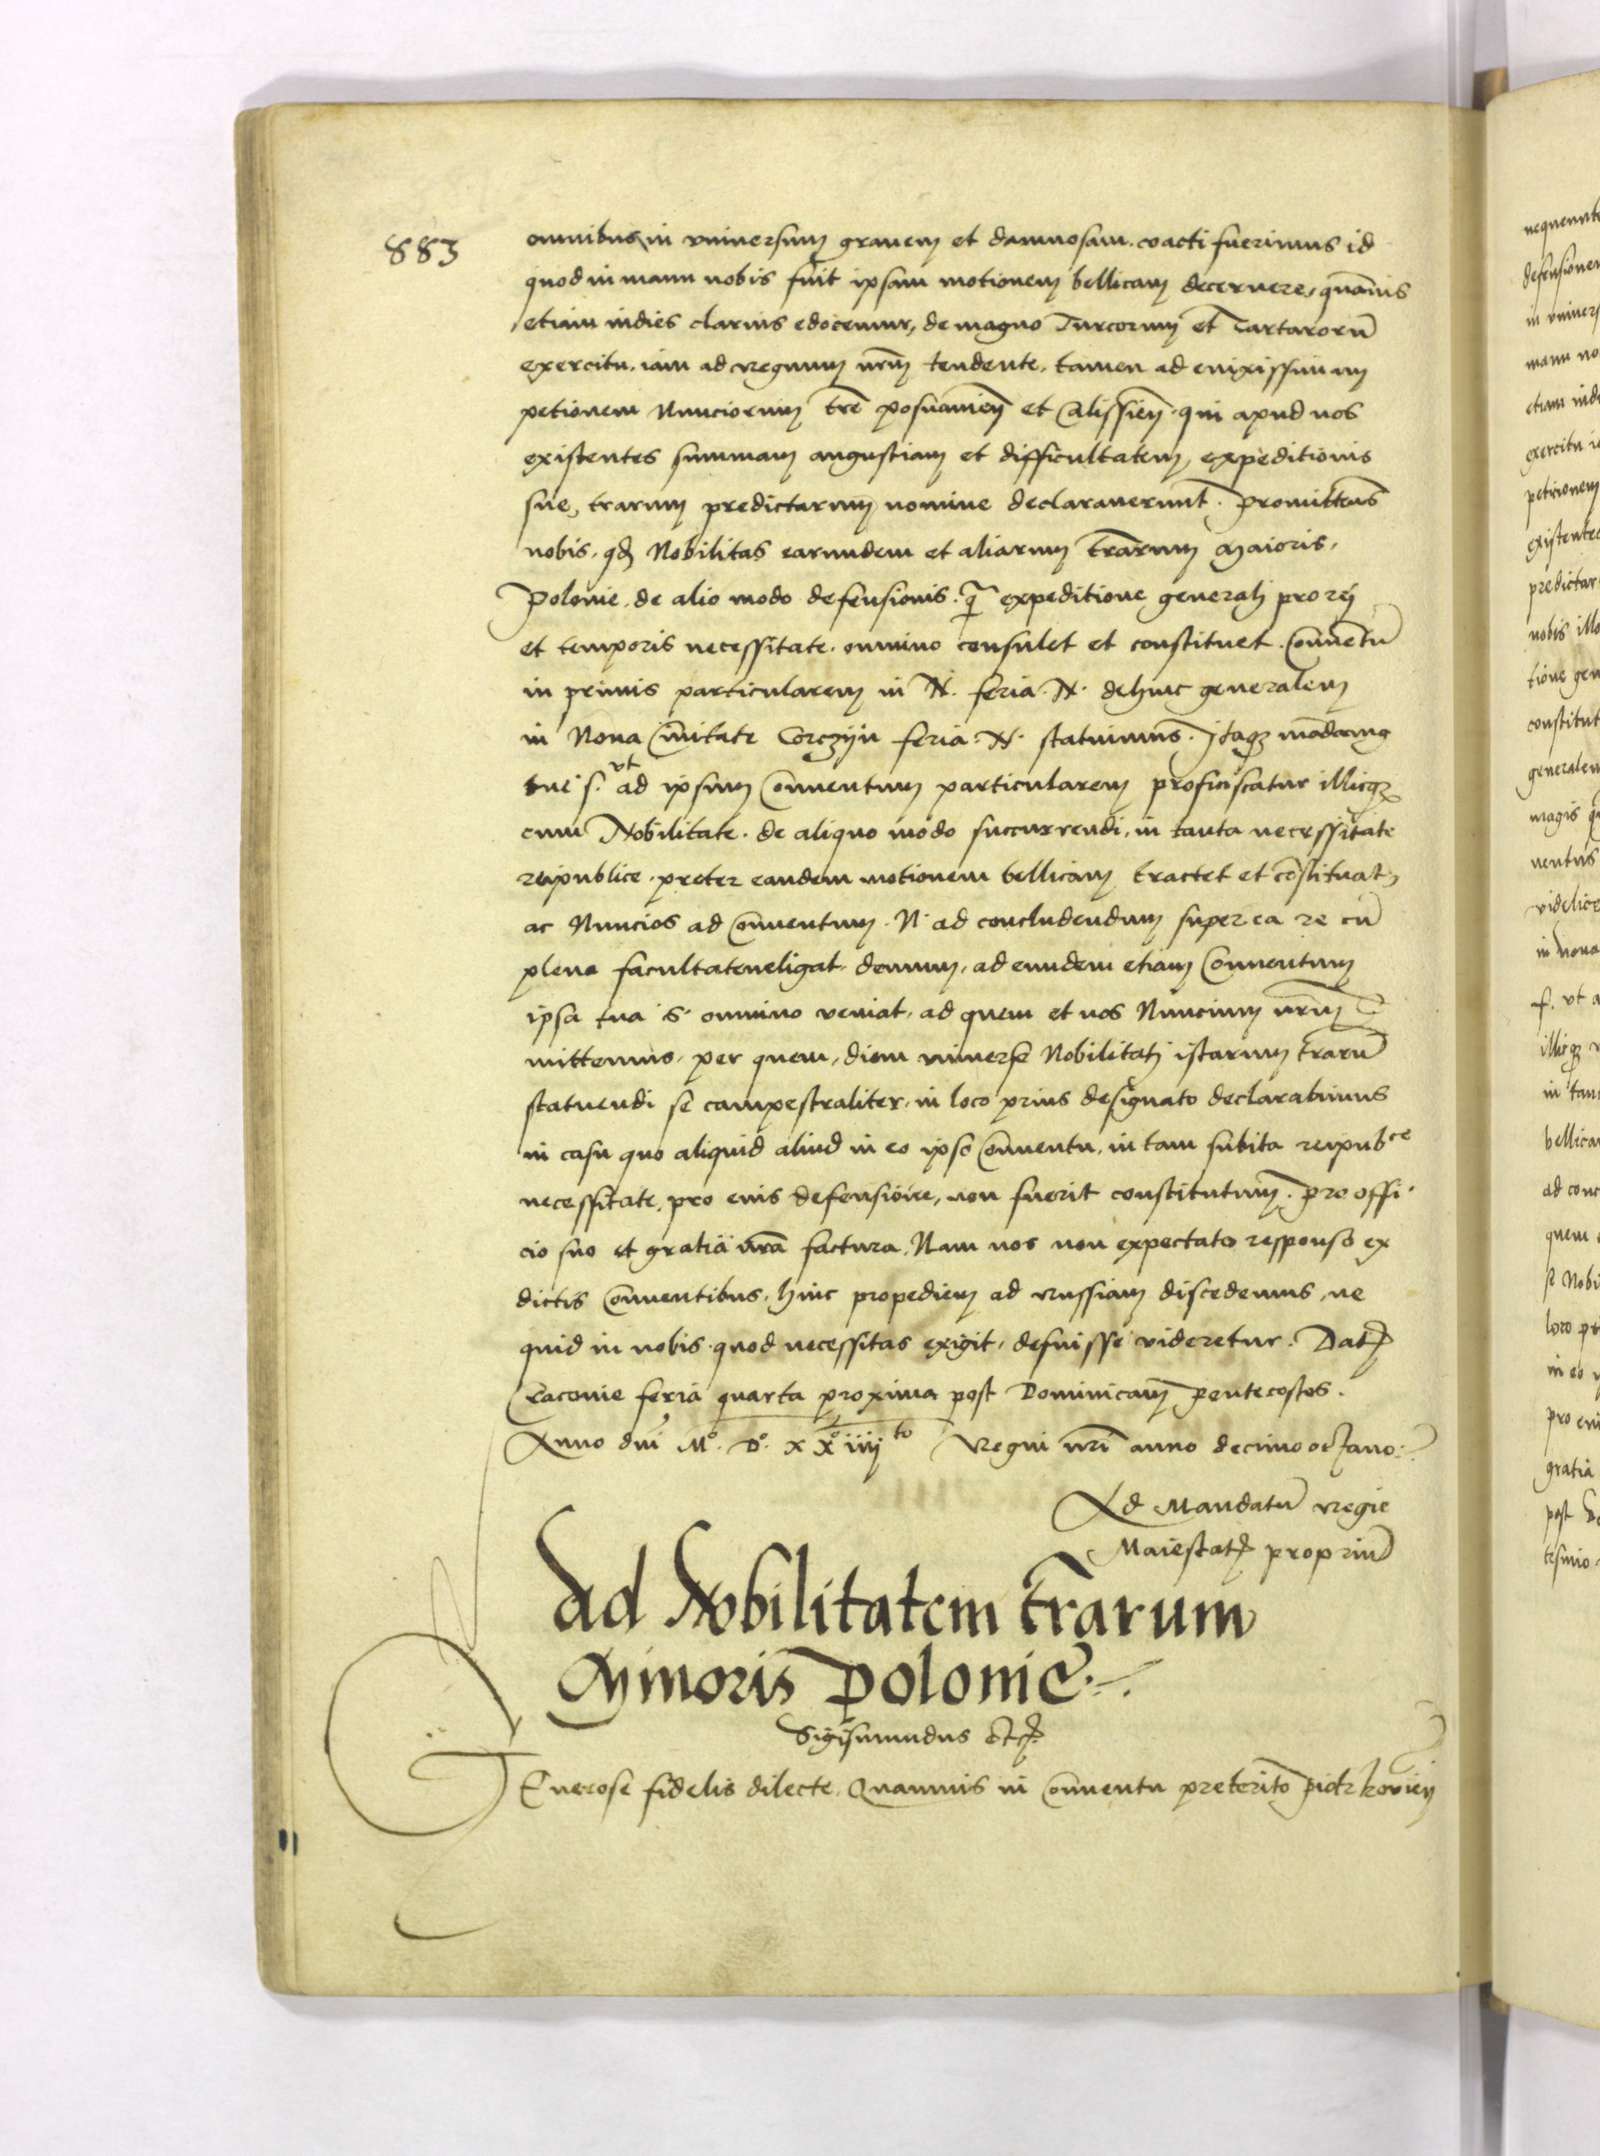 883
omnibus in vniversum gravem et damnosam coacti fuerimus id
quod in manu nobis fuit ipsam motionem bellicam decernere, quāvis
etiam indies clarius edocemur, de magno Turcorum et Tartarorū
exercitu, iam ad regnum nr̄m tendente, tamen ad enixissimam
petionem Nunciorum tr̄e posnanieñ et Calissieñ. qui apud nos
existentes summam angustiam et difficultatem, expeditionis
sue, trarum predictarum nomine declaraverunt. promittens
nobis, qd Nobilitas earundem et aliarum tr̄arum Maioris,
Polonie, de alio modo defensionis. q̄ expeditione generali pro rei
et temporis necessitate. omnino consulet et constituet. Conventū
in primis particularem in N. feria. N. dehinc generalem
in Nova Civitate Corczyn feria. N. statuimus. Itaq3 mādamus
tue s. vt ad ipsum Conventum particularem proficiscatur illicq3
cum Nobilitate. de aliquo modo succurrendi, in tanta necessitate
reipublice. preter eandem motionem bellicam tractet et cōstituat,
ac Nuncios ad Conventum. N. ad concludendum super ea re cū
plena facultate eligat. demum, ad eundem etiam Conventum
ipsa tua s. omnino veniat, ad quem et nos Nuncium nr̄m
mittemus. per quem, diem universe Nobilitati istarum trarū
statuendi se campestraliter, in loco prius designato declarabimus
in casu quo aliquid aliud in eo ipso Conventu, in tam subita reipubce
necessitate, pro eius defensione, non fuerit constitutum. pro offi-
cio suo et gratia nrā factura. Nam nos non expectato responso ex
dictis Conventibus, hinc propediem ad russiam discedemus, ne
quid in nobis. quod necessitas exigit, defuisse videretur. Dat
Cracovie feria quarta proxima post Dominicam pentecostes.
Anno dnī Mº. Dº. xxº iiijto Regni nr̄i anno decimo octavo
Ad Mandatū regie
Maiestat propriū
Ad Nobilitatem tr̄arum
Minoris Polonie
Sigismundus etc.
Generose fidelis dilecte. Quamvis in Conventu preterito piotrkovień